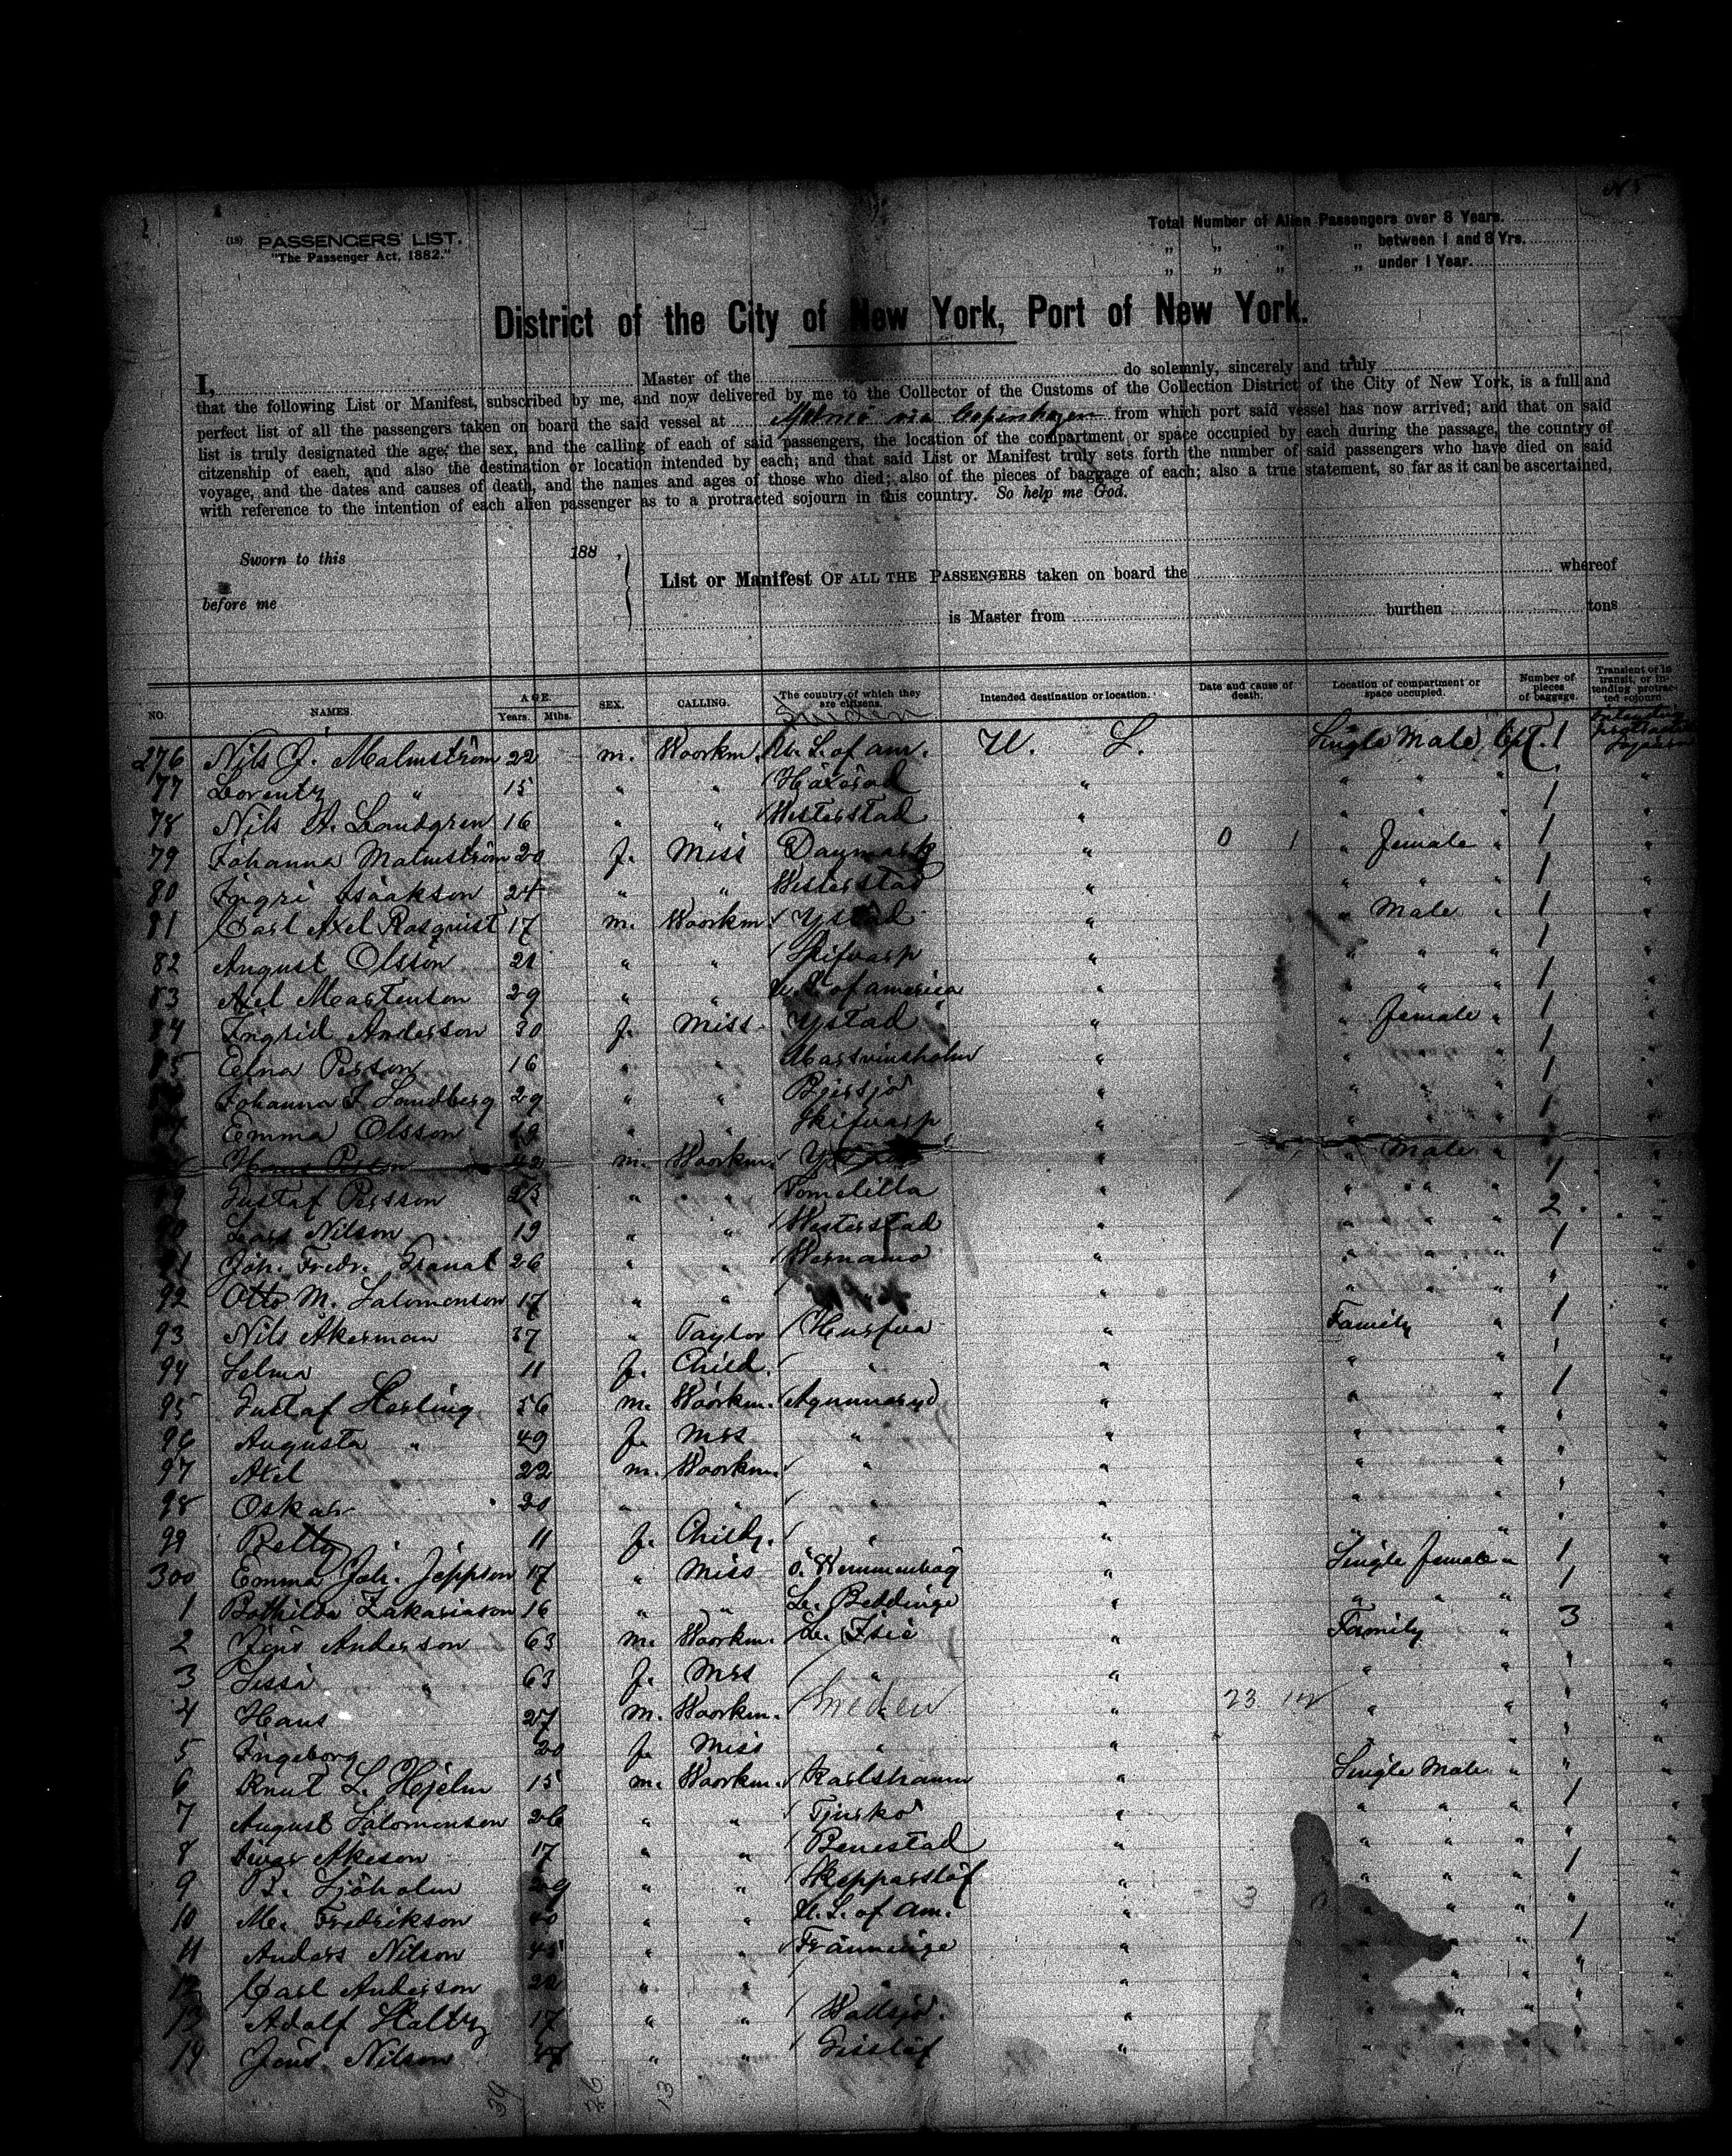 N 5
(18) PASSENGERS' LIST.
"The Passenger Act, 1882."
Total Number of Alien Passengers over 8 Years.
" " " " between 1 and 8 Yrs.
" " " " under 1 Year.
District of the City of New York, Port of New York.
I, Master of the do solemnly, sincerely and truly
that the following List or Manifest, subscribed by me, and now delivered by me to the Collector of the Customs of the Collection District of the City of New York, is a full and
perfect list of all the passengers taken on board the said vessel at Malmö via Copenhagen from which port said vessel has now arrived; and that on said
list is truly designated the age, the sex, and the calling of each of said passengers, the location of the compartment or space occupied by each during the passage, the country of
citzenship of each, and also the destination or location intended by each; and that said List or Manifest truly sets forth the number of said passengers who have died on said
voyage, and the dates and causes of death, and the names and ages of those who died; also of the pieces of baggage of each; also a true statement, so far as it can be ascertained,
with reference to the intention of each alien passenger as to a protracted sojourn in this country. So help me God.
Sworn to this 188 ,
before me
List or Manifest OF ALL THE PASSENGERS taken on board the whereof
is Master from burthen tons
NO. NAMES. AGE. Years. Mths. SEX. CALLING. The country of which they are citizens. Intended destination or location. Date and cause of death. Location of compartment or space occupied. Number of pieces of baggage. Transient or in transit, or intending protracted sojourn.
Sweden
276 Nils J. Malmström 22 m. Woorkm. U. S. of am. U. S. Single Male Cpt. 1
77 Lorentz " 15 " " Häröd " " " "
78 Nils A. Landgren 16 " " Westerstad " " " " 1 "
79 Johanna Malmström 20 f. Miss Dagmark " 0 1 " Female " 1 "
80 Ingri Isaakson 24 " " Westerstad " " " " 1 "
81 Carl Axel Rosquist 17 m. Woorkm. Ystad " " Male " 1 "
82 August Olsson 21 " " Skifvarp " " " " 1 "
83 Axel Mårtenson 29 " " U. S. of america " " " " 1 "
84 Ingrid Anderson 30 f. Miss Ystad " " Female " 1 "
85 Elna Persson 16 " " Marsvinsholm " " " " 1 "
Johanna F. Sandberg 29 " " Bjersjö " " " " 1 "
Emma Olsson 19 " " Skifvarp " " " " 1 "
m. Woorkm. " " Male "
89 Gustaf Persson 23 " " Tomelilla " " " " 1 "
90 Lars Nilson 19 " " Westerstad " " " " 2 "
91 Joh. Fredr. Granat 26 " " Wernamo " " " " 1 "
92 Otto M. Salomonson 17 " " " " " " " "
93 Nils Åkerman 37 " Taylor Husfva " Family " 1 "
94 Selma 11 f. Child. " " " " " "
95 Gustaf Herling 56 m. Woorkm. Agunnaryd " " " 1 "
96 Augusta " 49 f. Mrs " " " " " "
97 Axel 22 m. Woorkm. " " " " " "
98 Oskar " 20 " " " " " " " "
99 Betty " 11 f. Child. " " " " " "
300 Emma Joh. Jeppson 17 " Miss Ö. Wemmenhög " Single female " 1 "
1 Bothilda Zakariason 16 " " L. Beddinge " " " " 1 "
2 Jöns Anderson 63 m. Woorkm. L. Isie " Family " 3 "
3 Sissa " 63 f. Mrs " " " " " "
4 Hans 27 m. Woorkm. Sweden " 23 " " " "
5 Ingeborg 20 f. Miss " " " " " "
6 Knut L. Hjelm 15 m. Woorkm. Karlshamn " Single Male " " "
7 August Salomonson 26 " " Tjurkö " " " " 1 "
8 Iwar Åkeson 17 " " Benestad " " " " " "
9 B. Sjöholm 29 " " Skepparslöf " " " " 1 "
10 M. Fredrikson 40 " " U. S. of Am. " 3 " " " " "
11 Anders Nilson 45 " " Fränninge " " " " 1 "
12 Carl Anderson 22 " " " " " " " " "
13 Adolf Holtz 17 " " Wallsjö " " " " " "
14 Jöns Nilson 47 " " Gislöf " " " " " "
39 26 13